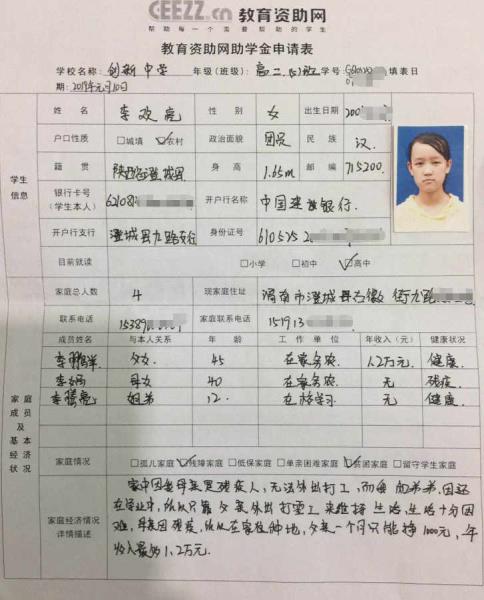 CEEZZ.cn 教育资助网
帮助每一个需要帮助的学生
教育资助网助学金申请表
学校名称: 创新中学 年级(班级): 高二 班 学号: 填表日
期: 2019年元月10日
学生信息
姓名 李欢亮 性别 女 出生日期 200
户口性质 □城镇 ☑农村 政治面貌 团员 民族 汉
籍贯 陕西省澄城县 身高 1.65m 邮编 715200
银行卡号(学生本人) 62108 开户行名称 中国建设银行
开户行支行 澄城县九路支行 身份证号 610525 2
目前就读 □小学 □初中 ☑高中
家庭成员及基本经济状况
家庭总人数 4 现家庭住址 渭南市澄城县古徵街九路
联系电话 15389 家庭联系电话 151913
成员姓名 与本人关系 年龄 工作单位 年收入(元) 健康状况
李鹏祥 父女 45 在家务农 1.2万元 健康
李 母女 40 在家务农 无 残疾
李腾亮 姐弟 12 在校学习 无 健康
家庭情况 □孤儿家庭 ☑残障家庭 □低保家庭 □单亲困难家庭 ☑贫困家庭 □留守学生家庭
家庭经济情况详情描述
家中因为母亲是残疾人,无法外出打工,而 弟弟,因还
在学业中,所以只靠父亲外出打零工来维持生活,生活十分困
难,母亲因残疾,所以在家种地,父亲一个月只能挣1000元,年
收入最多1.2万元.